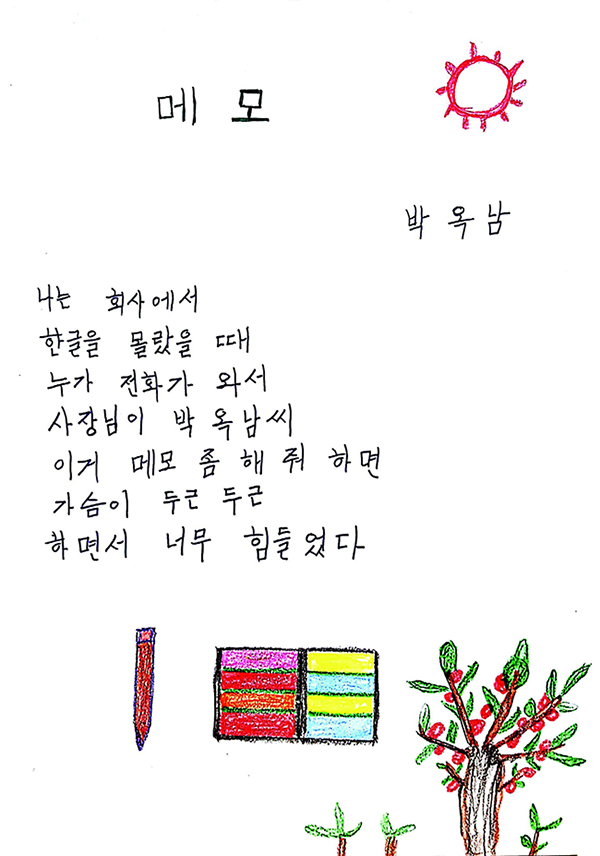 메모
박옥남
나는 회사에서
한글을 몰랐을 때
누가 전화가 와서
사장님이 박옥남씨
이거 메모 좀 해 줘 하면
가슴이 두근 두근
하면서 너무 힘들었다